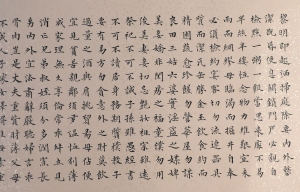 黎明即起灑掃庭除要內外整
潔既昏便息關鎖門戶必親自
檢點一粥一飯當思來處不易
半絲半縷恆念物力維艱宜未
雨而綢繆毋臨渴而掘井自奉
必須儉約宴客切勿流連器具
質而潔瓦缶勝金玉飲食約而
精園蔬愈珍饈勿營華屋勿謀
良田三姑六婆實淫盜之媒婢
美妾嬌非閨房之福童僕勿用
俊美妻妾切忌艷妝祖宗雖遠
祭祀不可不誠子孫雖愚經書
不可不讀居身務期質樸教子
要有義方勿貪意外之財勿飲
過量之酒與肩挑貿易毋佔便
宜見貧苦親鄰須加溫恤刻薄
成家理無久享倫常乖舛立見
消亡兄弟叔姪須分多潤寡長
幼內外宜法肅辭嚴聽婦言乖
骨肉豈是丈夫重資財薄父母